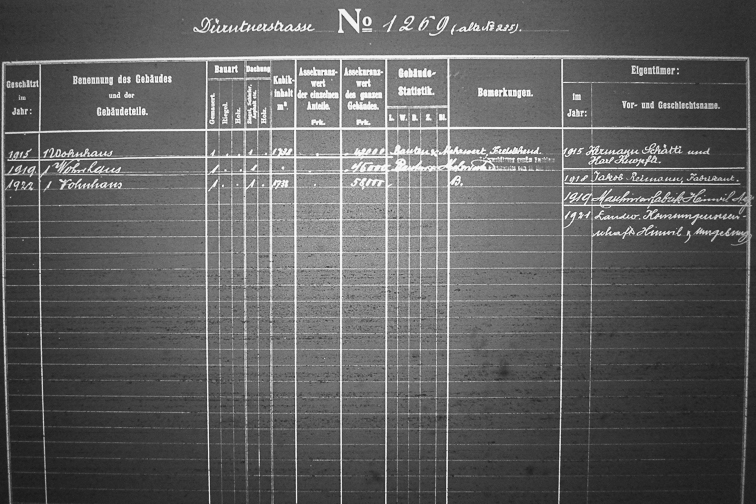 Dürntnerstrasse No 1269 (alte No 225).
Geschätzt im Jahr:
Benennung des Gebäudes und der Gebäudeteile.
Bauart
Gemauert.
Riegel.
Holz.
Dachung
Ziegel, Schiefer, Asphalt etc.
Holz.
Kubikinhalt m³
Assekuranzwert der einzelnen Anteile. Frk.
Assekuranzwert des ganzen Gebäudes. Frk.
Gebäude-Statistik.
L. W. B. Z. Bl.
Bemerkungen.
Eigentümer:
im Jahr:
Vor- und Geschlechtsname.
1915 1 Wohnhaus 1 . . 1 . 1738 . Mehrwert, Freistehend.
1915 Hermann Schätti und
Karl Knopfli.
1919 1 Wohnhaus 1 . . 1 . . 45000 Mehrwert
1918 Jakob Reimann, Fabrikant.
1922 1 Wohnhaus 1 . . 1 . 1738 . 58,000 B.
1919 Maschinenfabrik Hinwil A.G.
1921 Landw. Konsumgenossen
schaft Hinwil & Umgebung